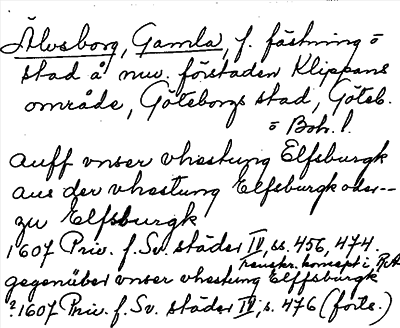 Älvsborg, Gamla, f. fästning o
stad å nuv. förstaden Klippans
område, Göteborgs stad, Göteb.
o Boh. l.
auff vnser vhestung Elfsburgk
aus der vhestung Elfsburgk oder--
zu Elfsburgk
1607 Priv. f. Sv. städer IV, ss. 456, 474.
Transkr. koncept i RA
gegenüber vnser vhestung Elffsburgk
?1607 Priv. f. Sv. städer IV, s. 476 (forts.)